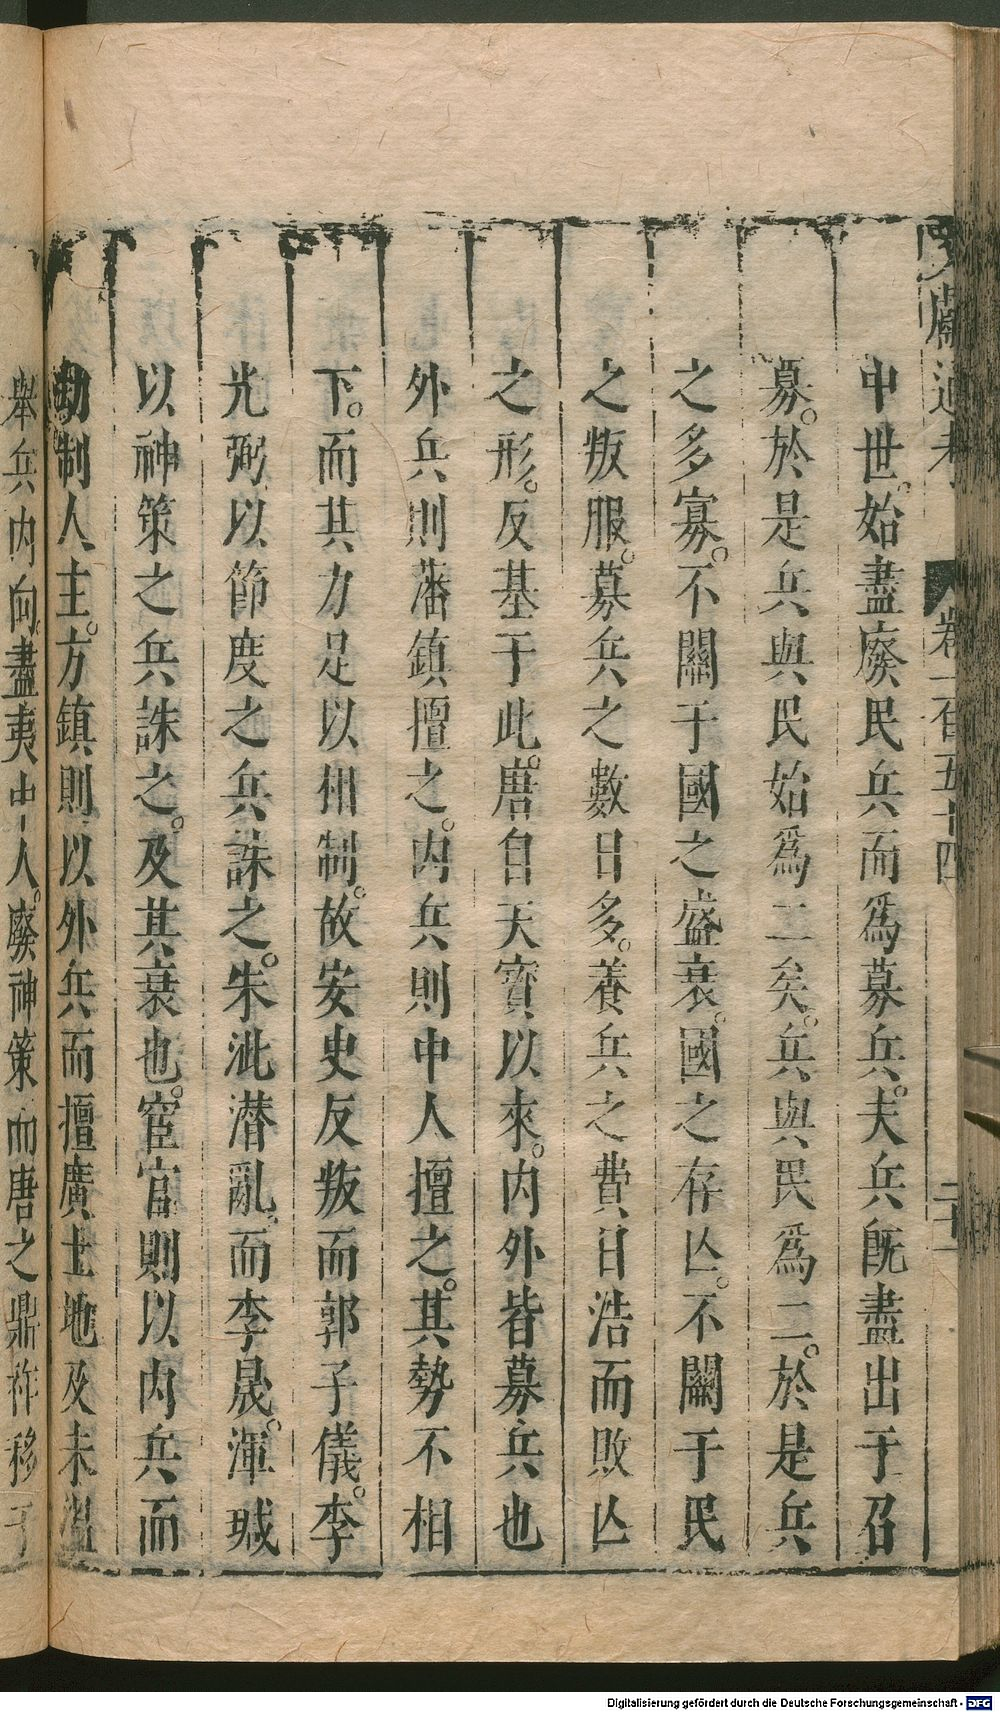 文獻通考 卷一百五十四
中世。始盡廢民兵而爲募兵。夫兵旣盡出于召
募。於是兵與民始爲二矣。兵與民爲二。於是兵
之多寡。不關于國之盛衰。國之存亾。不關于民
之叛服。募兵之數日多。養兵之費日浩而敗亾
之形。反基于此。唐自天寶以來。内外皆募兵也
外兵則藩鎮擅之。内兵則中人擅之。其勢不相
下。而其力足以相制。故安史反叛而郭子儀。李
光弼以節度之兵誅之。朱泚潜亂。而李晟。渾瑊
以神策之兵誅之。及其衰也。宦官則以内兵而
劫制人主。方鎮則以外兵而擅廣土地及朱溫
舉兵内向。盡夷中人。廢神策而唐之鼎祚移于
Digitalisierung gefördert durch die Deutsche Forschungsgemeinschaft - DFG